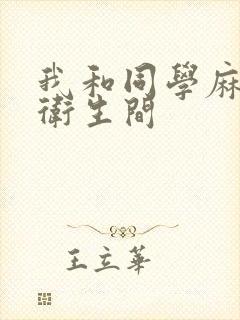 我和同學麻
衛生間
王立華